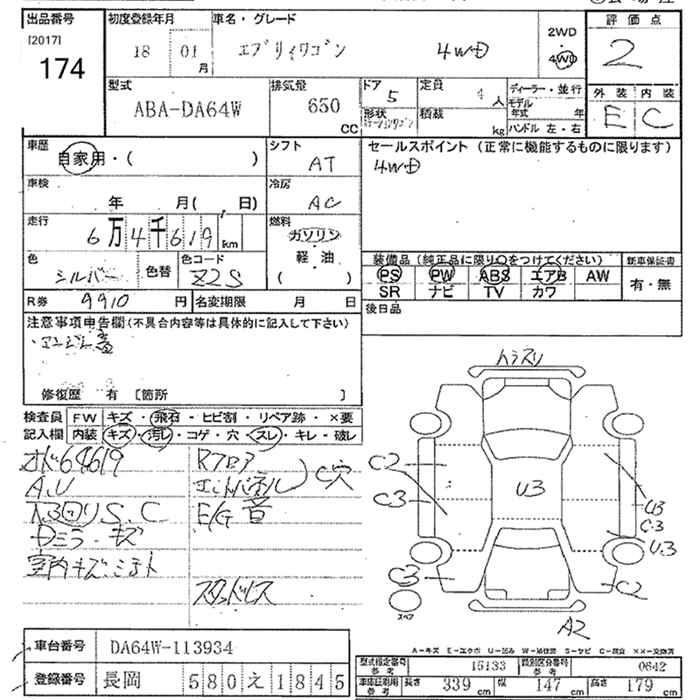 出品番号 初度登録年月 車名・グレード 評価点
[2017] 174 18 01月 エブリィワゴン 4WD 2WD 4WD 2
型式 排気量 ドア 定員 ディーラー・並行 外装 内装
ABA-DA64W 650 CC 5 4人 モデル年式 年 E C
形状 ステーションワゴン 積載 kg ハンドル 左・右
車歴 シフト セールスポイント (正常に機能するものに限ります)
自家用・( ) AT 4WD
車検 冷房
年 月( 日) AC
走行 燃料
6万4千619km ガソリン
色 色替 色コード 軽油 装備品 (純正品に限り○をつけてください) 新車保証書
シルバー Z2S ( ) PS PW ABS エアB AW 有・無
SR ナビ TV カワ
R券 9910円 名変期限 月 日 後日品
注意事項申告欄(不具合内容等は具体的に記入して下さい)
・エンジン音
修復歴 有 [箇所 ]
検査員 FW キズ・飛石・ヒビ割・リペア跡・×要
記入欄 内装 キズ・汚レ・コゲ・穴・スレ・キレ・破レ
オド64619 Rフロア
A.U エンドパネル C穴
S.C E/G音
Dミラーキズ
室内キズ・ヨゴレ
スタッドレス
トラスリ
C2
C3
U3
U3
C3
U3
C3
C2
スペア
A2
A-キズ E-エクボ U-凹み W-補修跡 S-サビ C-腐食 ××-交換済
車台番号 DA64W-113934
登録番号 長岡 580 え 1845
型式指定番号 参考 15133 類別区分番号 参考 0642
参考 長さ 339cm 幅 147cm 高さ 179cm